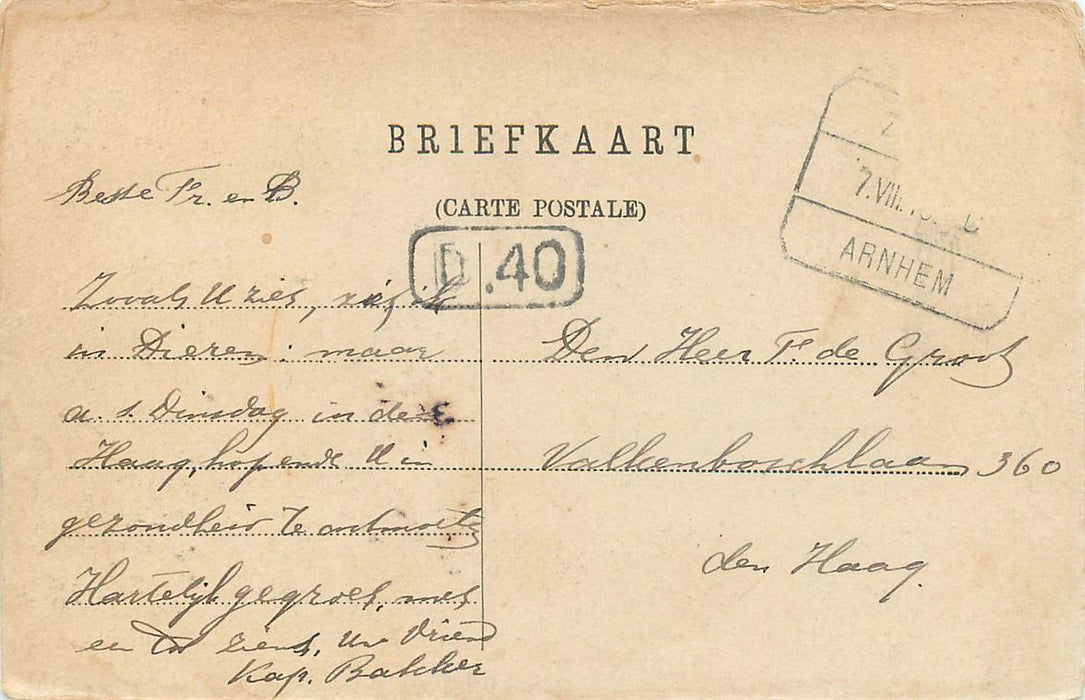 BRIEFKAART
(CARTE POSTALE)
7.VIII.
ARNHEM
D.40
Beste Fr. en B.
Zooals U ziet, zit ik
in Dieren. maar
a. s. Dinsdag in den
Haag, hopende U in
gezondheid te ontmoeten
Hartelijk gegroet, met
een tot ziens, Uw Vriend
Kap. Bakker
Den Heer Fr. de Groot
Valkenboschlaan 360
den Haag.